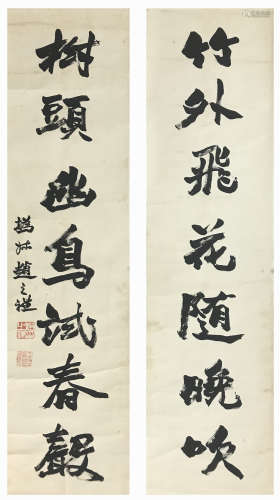 竹外飛花随晚吹
樹頭幽鳥試春聲
撝叔趙之謙